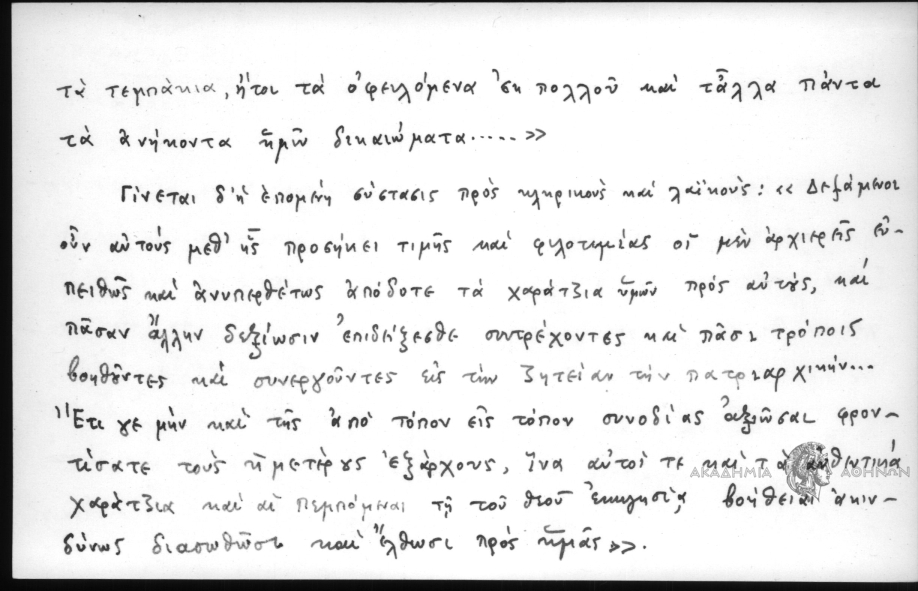 τὰ τεμπάκια, ἤτοι τὰ ὀφειλόμενα ἐκ πολλοῦ καὶ τἆλλα πάντα
τὰ ἀνήκοντα ἡμῖν δικαιώματα.....»
Γίνεται δ' ἡ ἑπομένη σύστασις πρὸς κληρικοὺς καὶ λαϊκούς: « Δεξάμενοι
οὖν αὐτοὺς μεθ' ἧς προσήκει τιμῆς καὶ φιλοτιμίας οἱ μὲν ἀρχιερεῖς εὐ-
πειθῶς καὶ ἀνυπερθέτως ἀπόδοτε τὰ χαράτζια ὑμῶν πρὸς αὐτούς, καὶ
πᾶσαν ἄλλην δεξίωσιν ἐπιδείξεσθε συντρέχοντες καὶ πᾶσι τρόποις
βοηθοῦντες καὶ συνεργοῦντες εἰς τὴν ζητείαν τὴν πατριαρχικήν...
"Ἔτι γε μὴν καὶ τῆς ἀπὸ τόπον εἰς τόπον συνοδίας ἀξιῶσαι φρον-
τίσατε τοὺς ἡμετέρους ἐξάρχους, ἵνα αὐτοί τε καὶ τὰ αὐθεντικὰ
χαράτζια καὶ αἱ πεμπόμεναι τῇ τοῦ Θεοῦ ἐκκλησίᾳ βοήθειαι ἀκιν-
δύνως διασωθῶσι καὶ ἔλθωσι πρὸς ἡμᾶς».
ΑΚΑΔΗΜΙΑ ΑΘΗΝΩΝ